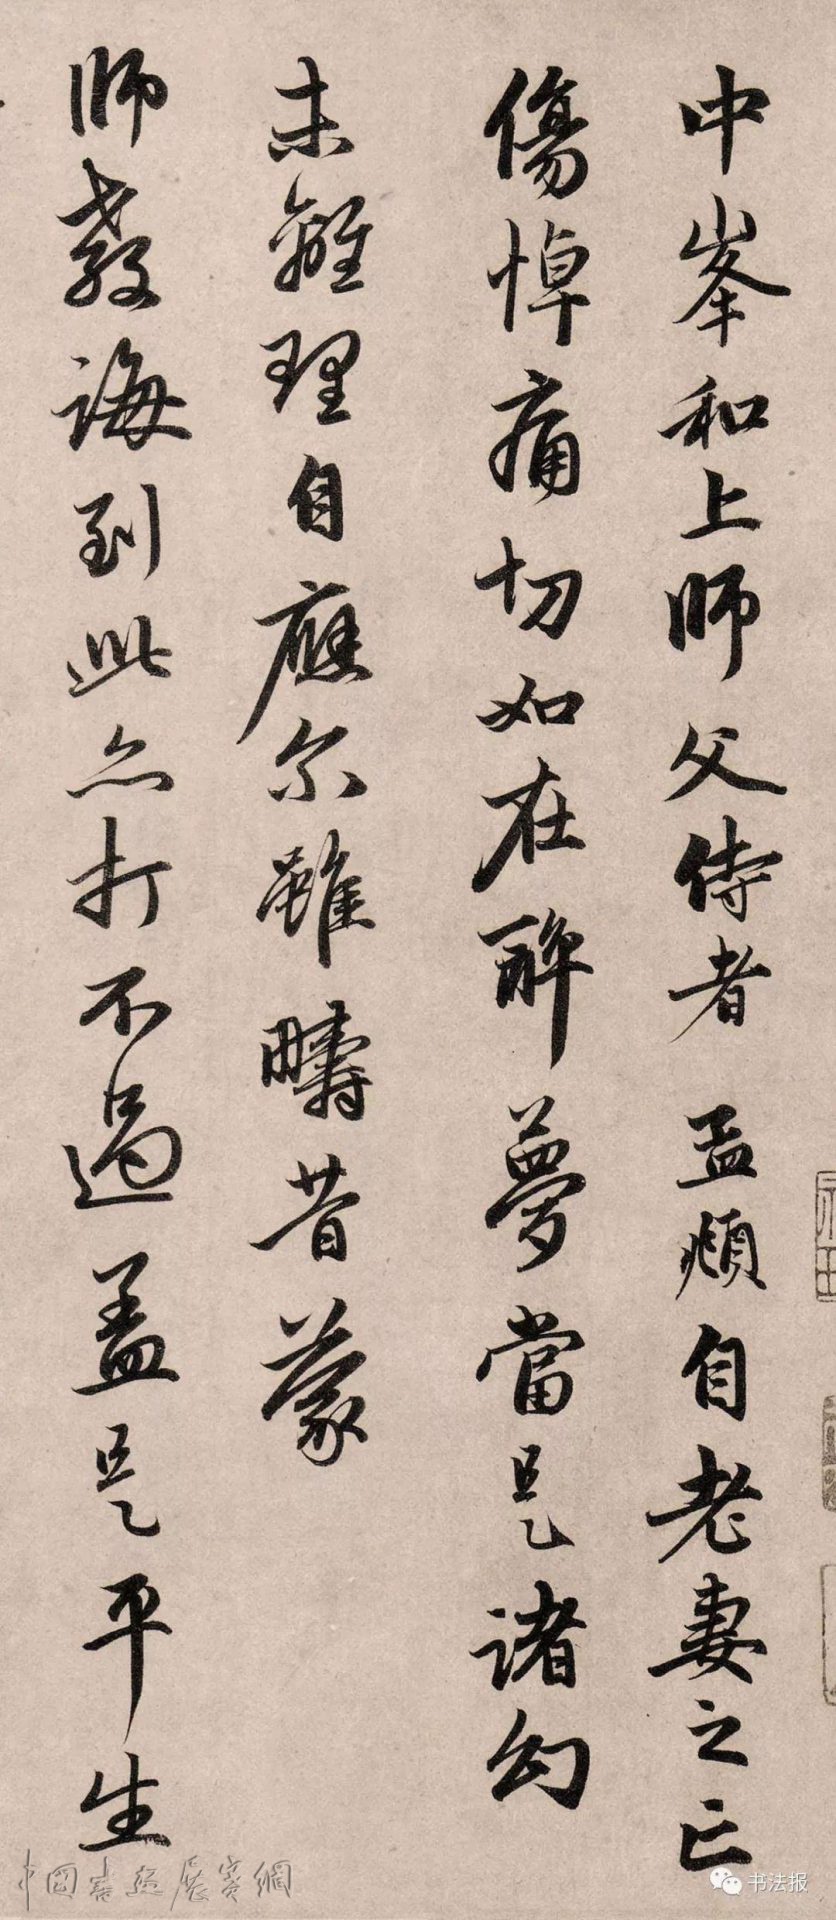 中峯和上師父侍者 孟頫自老妻之亡
傷悼痛切如在醉夢當是諸幻
未離理自應尒雖疇昔蒙
師教誨到此亦打不過盖是平生
中國書画展賽網
书法报